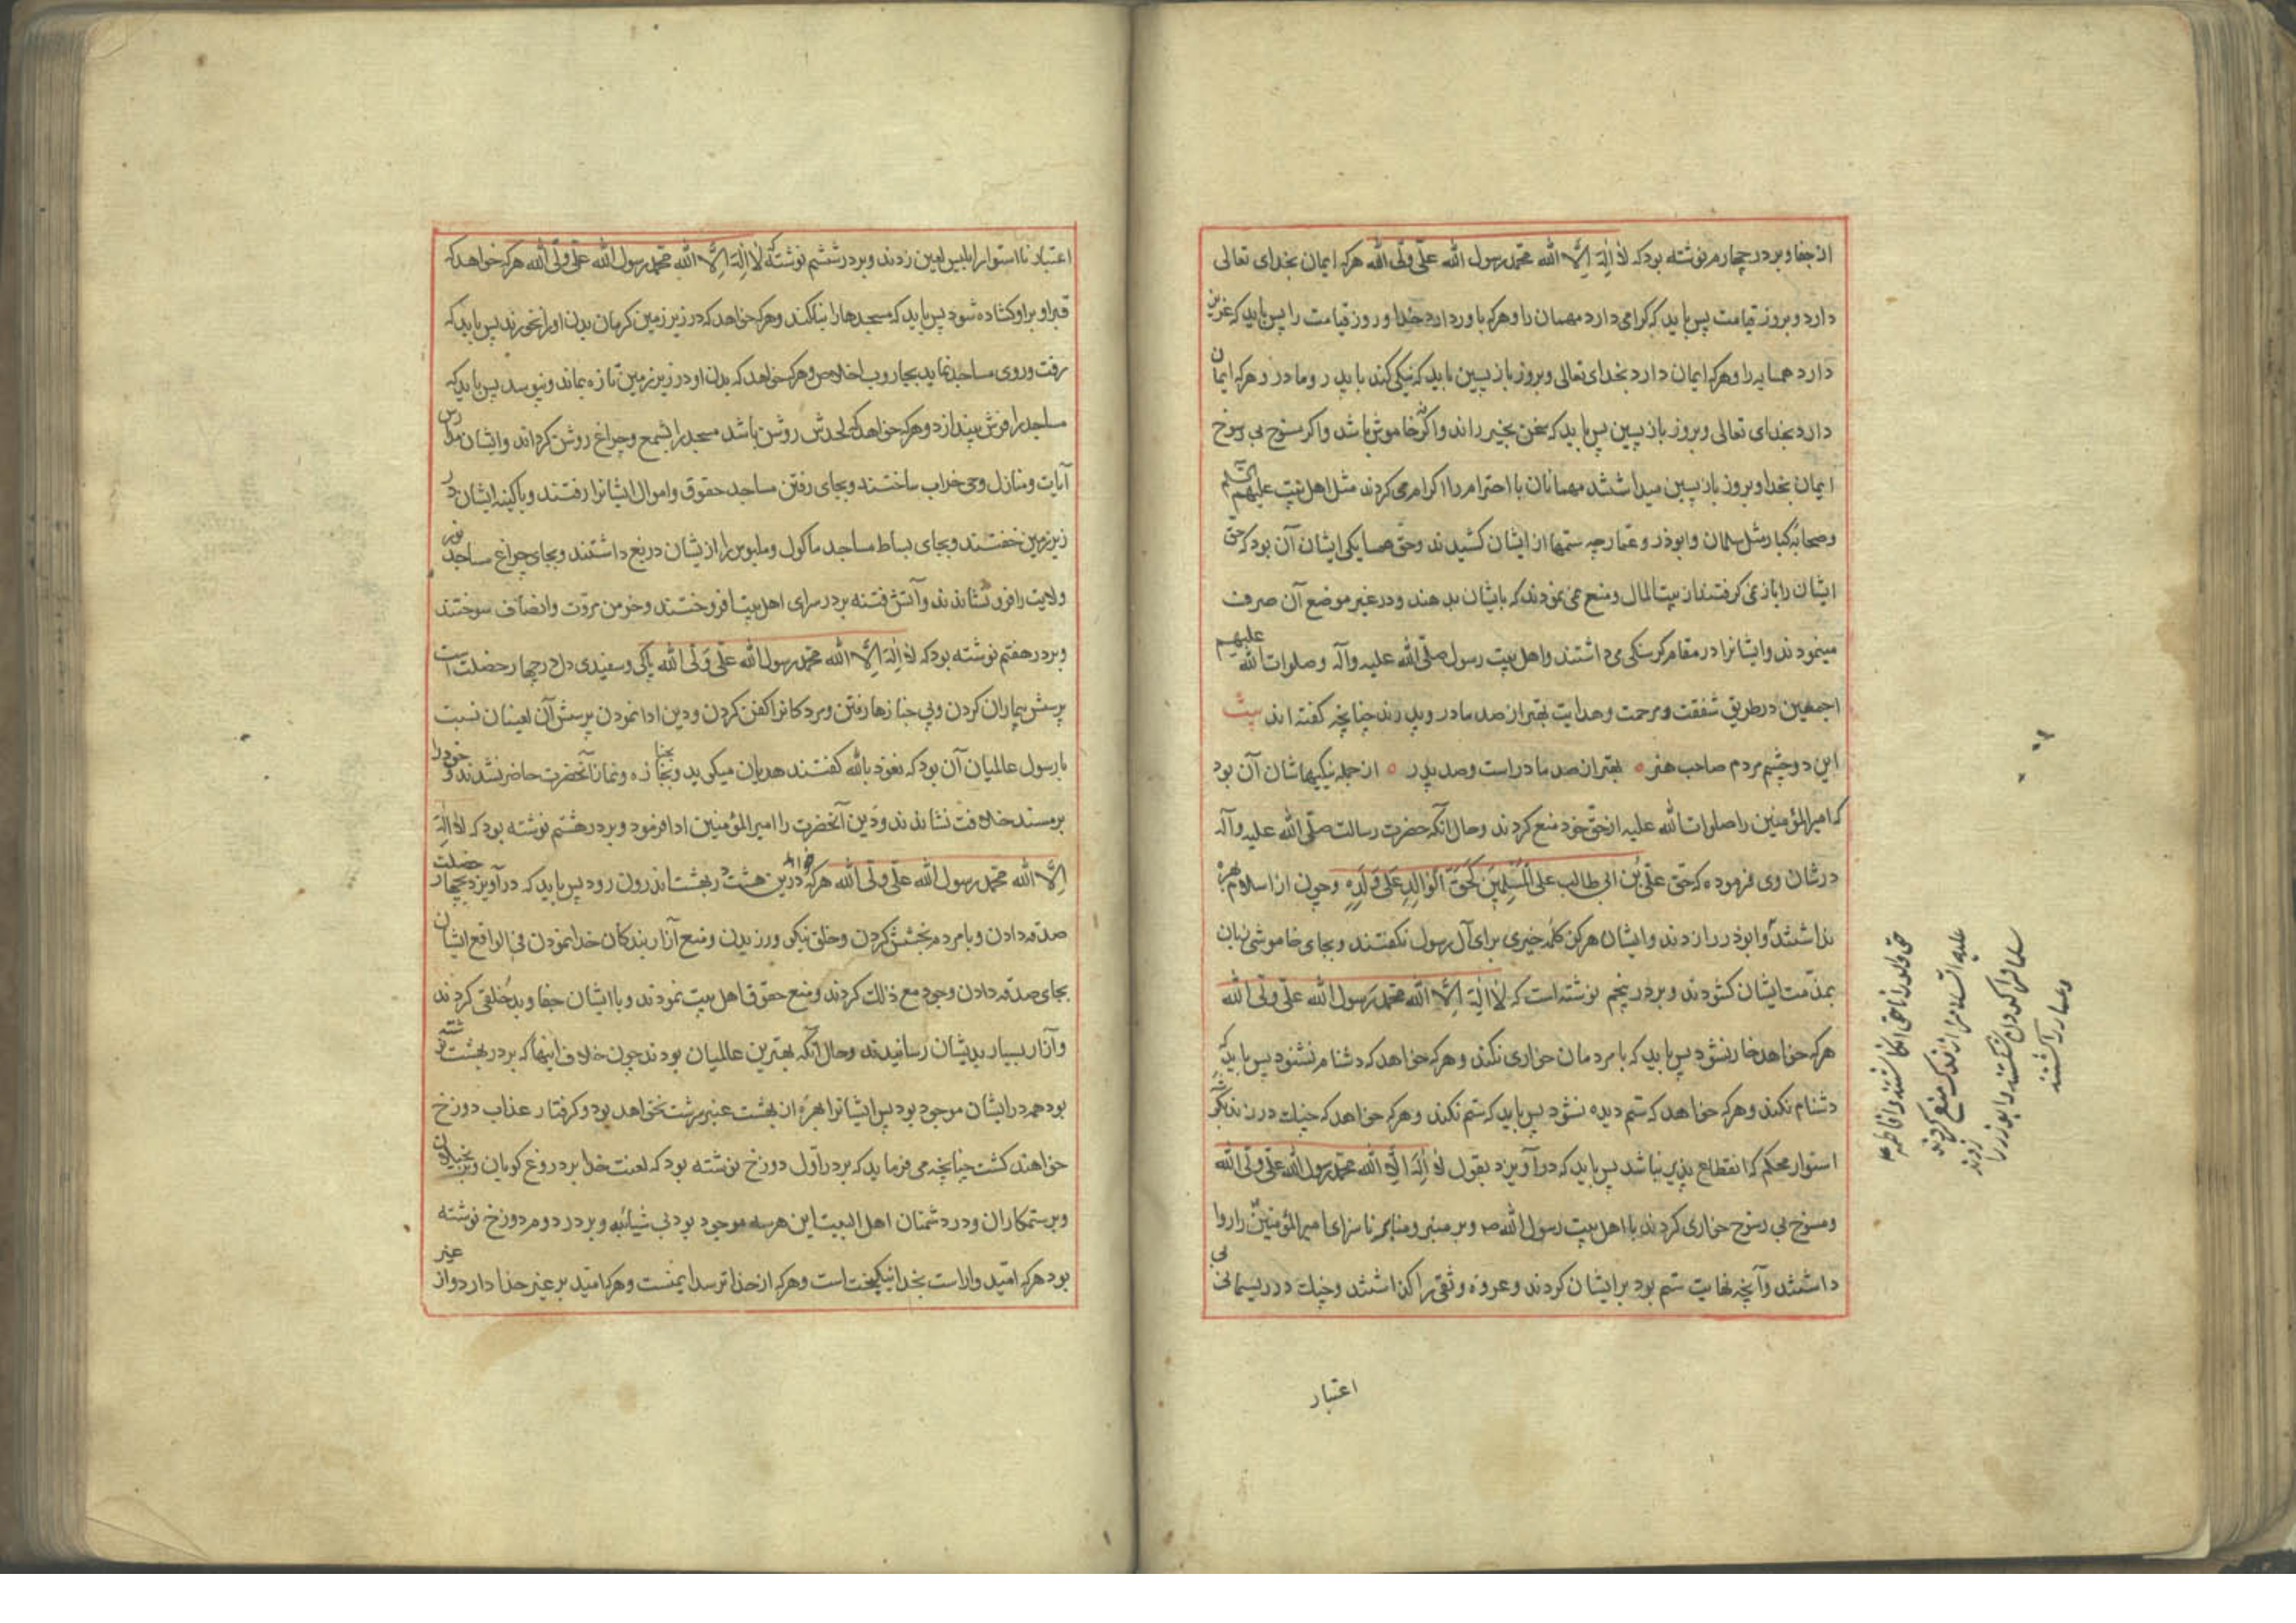 از جفا و بر در چهارم نوشته بود که لا اله الا الله محمد رسول الله علی ولی الله هرکه ایمان بخدای تعالی
دارد و بروز قیامت پس باید که کرامی دارد مهمان را و هرکه باور دارد خدا و روز قیامت را پس باید که عزیز
دارد همسایه را و هرکه ایمان دارد بخدای تعالی و بروز بازپسین باید که نیکی کند با پدر و مادر و هرکه ایمان
دارد بخدای تعالی و بروز بازپسین پس باید که سخن بخیر راند و اکرنه خاموش باشد و اکر منوخ بی رسوخ
ایمان بخدا و بروز بازپسین میداشتند مهمانان با احترام را اکرام می کردند مثل اهل بیت علیهم السلم
و صحابه کبار مثل سلمان و ابوذر و عمار چه ستمها از ایشان کشیدند و حق همسایکی ایشان آن بود که حق
ایشان را باز می کرفتند از بیت المال و منع می نمودند که بایشان بدهند و در غیر موضع آن صرف
مینمودند و ایشانرا در مقام کرسنکی می داشتند و اهل بیت رسول صلی الله علیه وآله و صلوات الله علیهم
اجمعین در طریق شفقت و مرحمت و هدایت بهتر از صد مادر و پدرند چنانچه کفته اند بیت
این دو چشم مردم صاحب هنر ه بهتر از صد مادر است و صد پدر ه از جمله نیکیهاشان آن بود
که امیر المؤمنین را صلوات الله علیه از حق خود منع کردند و حال آنکه حضرت رسالت صلی الله علیه وآله
در شان وی فرموده که حق علی بن ابی طالب علی المسلمین کحق الوالد علی ولده و چون از اسلام بهره
نداشتند و ابوذر را زدند و ایشان هرکز کلمه خیری برای آل رسول نکفتند و بجای خاموشی زبان
بمذمت ایشان کشودند و بر در پنجم نوشته است که لا اله الا الله محمد رسول الله علی ولی الله
هرکه خواهد خوار نشود پس باید که با مردمان خواری نکند و هرکه خواهد که دشنام نشنود پس باید که
دشنام نکند و هرکه خواهد که ستم دیده نشود پس باید که ستم نکند و هرکه خواهد که چنک در زند بکمر
استوار محکم که انقطاع پذیر نباشد پس باید که در آویزد بقول لا اله الا الله محمد رسول الله علی ولی الله
و منوخ بی رسوخ خواری کردند با اهل بیت رسول الله ص و بر منبر و منابر ناسزای امیر المؤمنین را روا
داشتند و آنچه نهایت ستم بود بر ایشان کردند و عروه وثقی را کذاشتند و چنک در ریسمانی بی
حق والد را ناحق انکاشتند و فاطمه
علیها السلام را از فدک منع کردند
سلمان را کردن شکستند و ابوذر را زدند
و عمار را کشتند
اعتبار
اعتبار نااستوار ابلیس لعین زدند و بر در ششم نوشته که لا اله الا الله محمد رسول الله علی ولی الله هرکه خواهد که
قبر او بر او کشاده شود پس باید که مسجدها را بنا کند و هرکه خواهد که در زیر زمین کرمان بدن او را نخورند پس باید که
رفت و روی مساجد نماید بجاروب اخلاص و هرکه خواهد که بدن او در زیر زمین تازه بماند و نپوسد پس باید که
مساجد را فرش بیندازد و هرکه خواهد که لحدش روشن باشد مسجد را بشمع و چراغ روشن کرداند و ایشان مدارس
آیات و منازل وحی خراب ساختند و بجای رفتن مساجد حقوق و اموال ایشانرا رفتند و با کینه ایشان در
زیر زمین خفتند و بجای بساط مساجد ماکول و ملبوس را از یشان دریغ داشتند و بجای چراغ مساجد نور
ولایت را فرو نشاندند و آتش فتنه بر در سرای اهل بیت افروختند و خرمن مروت و انصاف سوختند
و بر در هفتم نوشته بود که لا اله الا الله محمد رسول الله علی ولی الله پاکی و سفیدی دل در چهار خصلت است
پرسش بیماران کردن و پی جنازها رفتن و مردکانرا کفن کردن و دین ادا نمودن پرسش آن لعینان نسبت
با رسول عالمیان آن بود که نعوذ بالله کفتند هذیان میکوید و بجنازه و نماز آنحضرت حاضر نشدند و خود را
بر مسند خلافت نشاندند و دین آنحضرت را امیر المؤمنین ادا فرمود و بر در هشتم نوشته بود که لا اله
الا الله محمد رسول الله علی ولی الله هرکه خواهد درین هشت در بهشت اندرون رود پس باید که در آویزد بچهار خصلت
صدقه دادن و با مردم بخشش کردن و خلق نیکو ورزیدن و منع آزار بندکان خدا نمودن فی الواقع ایشان
بجای صدقه دادن وجود مع ذلک کردند و منع حقوق اهل بیت نمودند و با ایشان جفا و بدخلقی کردند
و آزار بسیار بدیشان رسانیدند و حال آنکه بهترین عالمیان بودند چون خلاف اینها که بر در بهشت نوشته
بود همه در ایشان موجود بود پس ایشانرا بهره از بهشت عنبر سرشت نخواهد بود و کرفتار عذاب دوزخ
خواهند کشت چنانچه می فرماید که بر در اول دوزخ نوشته بود که لعنت خدا بر دروغ کویان و بر بخیلان
و بر ستمکاران و در دشمنان اهل البیت این هر سه موجود بود بی شیائبه و بر در دوم دوزخ نوشته
بود هرکه امید وار است بخدا نیکبخت است و هرکه از خدا ترسد ایمنست و هرکه امید بر غیر خدا دارد و از غیر